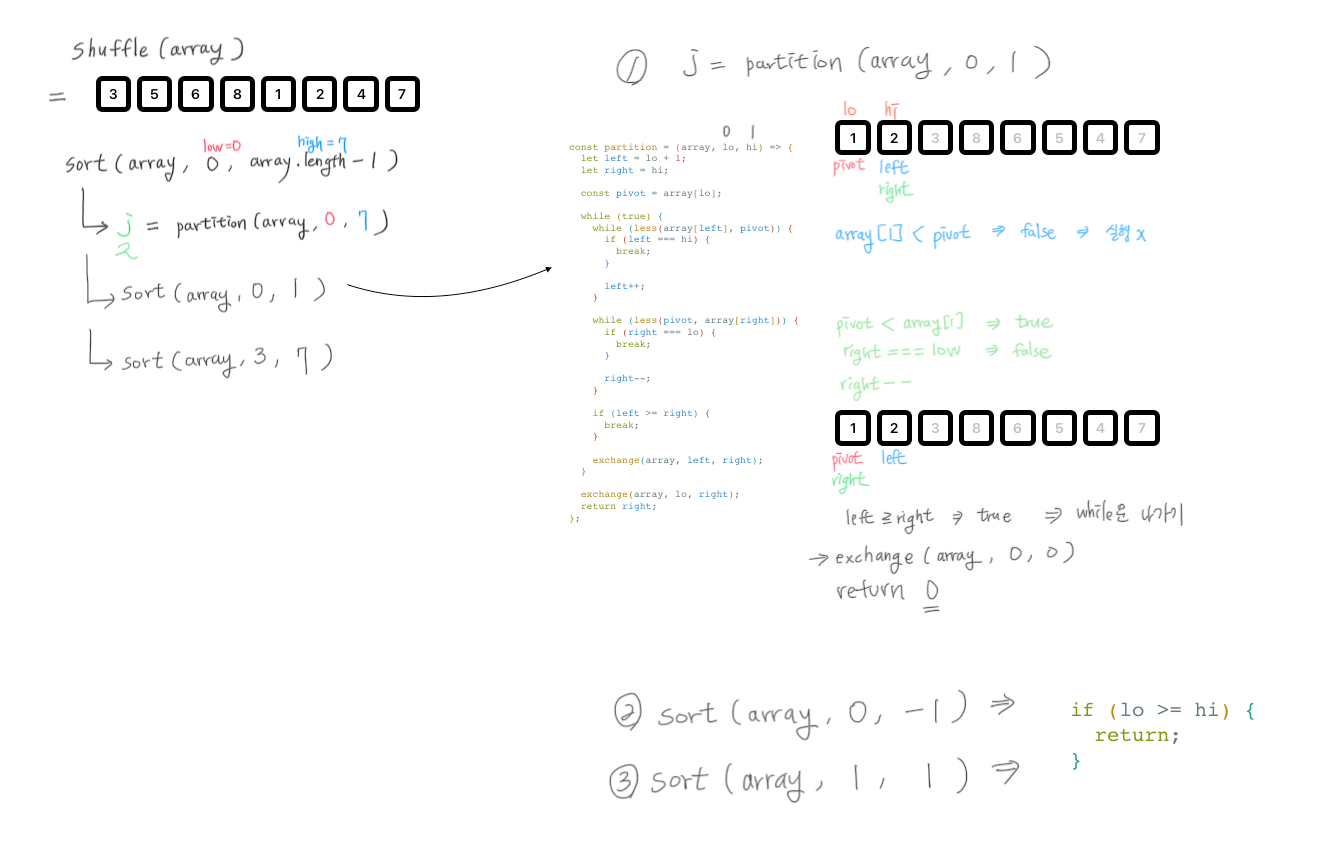 shuffle (array)
= 3 5 6 8 1 2 4 7
low=0 high=7
sort (array, 0, array.length-1)
j = partition (array, 0, 7)
2
sort (array, 0, 1)
sort (array, 3, 7)
① j = partition (array, 0, 1)
0 1
const partition = (array, lo, hi) => {
let left = lo + 1;
let right = hi;
const pivot = array[lo];
while (true) {
while (less(array[left], pivot)) {
if (left === hi) {
break;
}
left++;
}
while (less(pivot, array[right])) {
if (right === lo) {
break;
}
right--;
}
if (left >= right) {
break;
}
exchange(array, left, right);
}
exchange(array, lo, right);
return right;
};
lo hi
1 2 3 8 6 5 4 7
pivot left
right
array[1] < pivot ⇒ false ⇒ 실행 x
pivot < array[1] ⇒ true
right === low ⇒ false
right--
1 2 3 8 6 5 4 7
pivot left
right
left ≥ right ⇒ true ⇒ while문 나가기
→ exchange (array, 0, 0)
return 0
② sort (array, 0, -1) ⇒
③ sort (array, 1, 1) ⇒
if (lo >= hi) {
return;
}